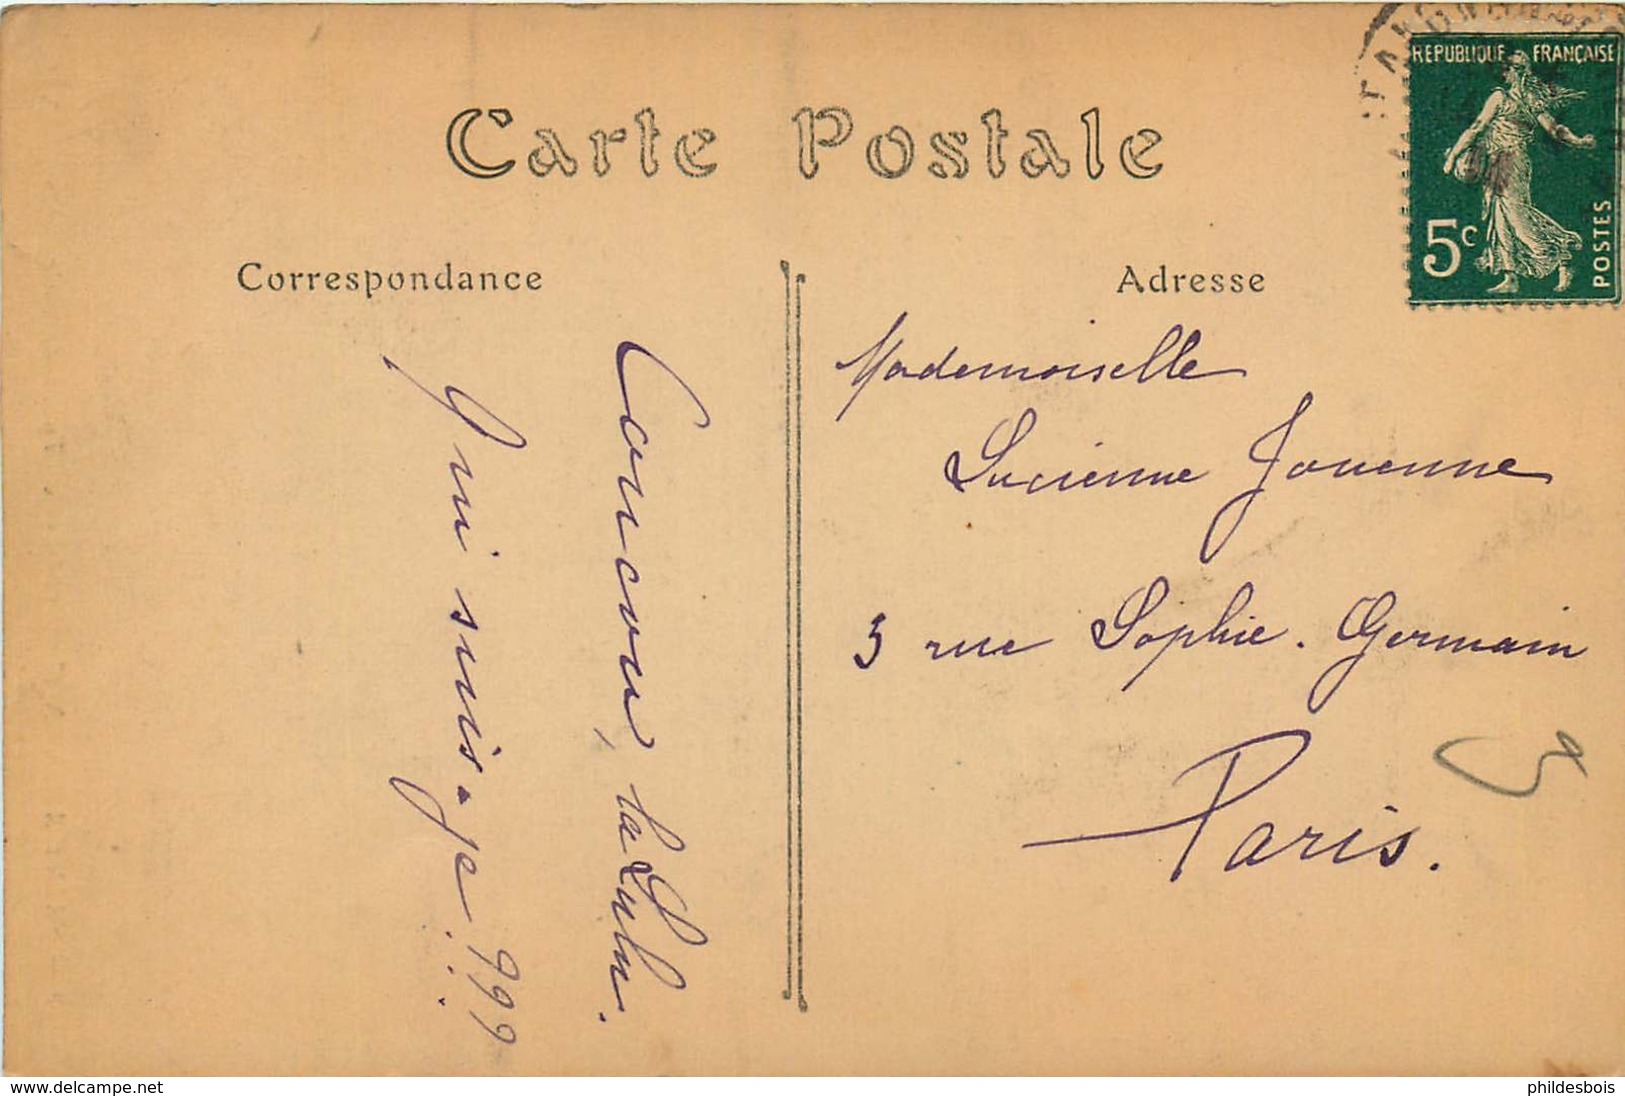 Carte Postale
Correspondance
Adresse
REPUBLIQUE FRANÇAISE
5c
POSTES
Coucou, la Lulu.
Qui suis-je. ???
Mademoiselle
Lucienne Jouenne
3 rue Sophie. Germain
Paris.
www.delcampe.net
phildesbois